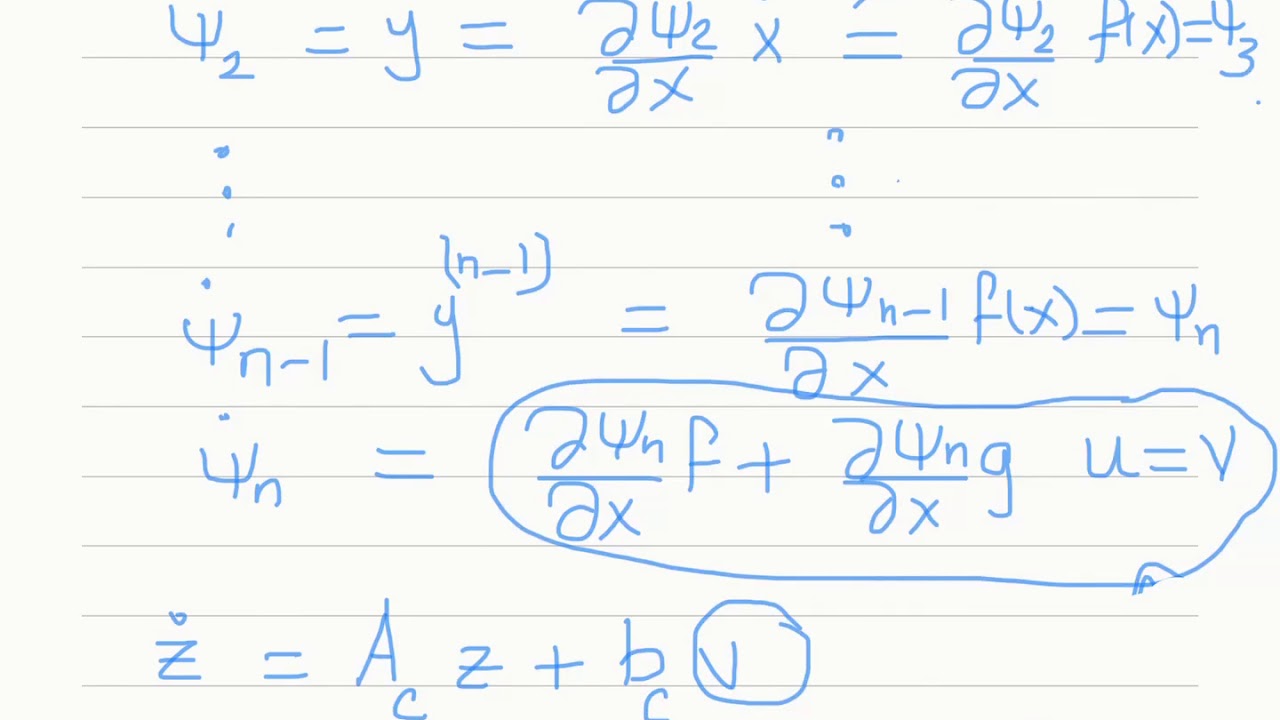 ψ₂ = y = ∂ψ₂/∂x ẋ = ∂ψ₂/∂x f(x) = ψ₃
⋮ ⋮
ψ̇ₙ₋₁ = y⁽ⁿ⁻¹⁾ = ∂ψₙ₋₁/∂x f(x) = ψₙ
ψ̇ₙ = ∂ψₙ/∂x f + ∂ψₙ/∂x g u = v
ż = A_c z + b_c v